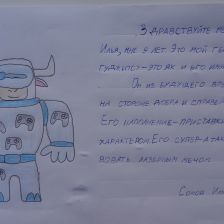 Здравствуйте ме
Илья, мне 9 лет. Это мой ге
это як и его им
Он из будущего вре
на стороне добра и справед
Его наполнение - приставк
характером. Его супер-атак
вовать лазерным мечом.
Сомов Ил